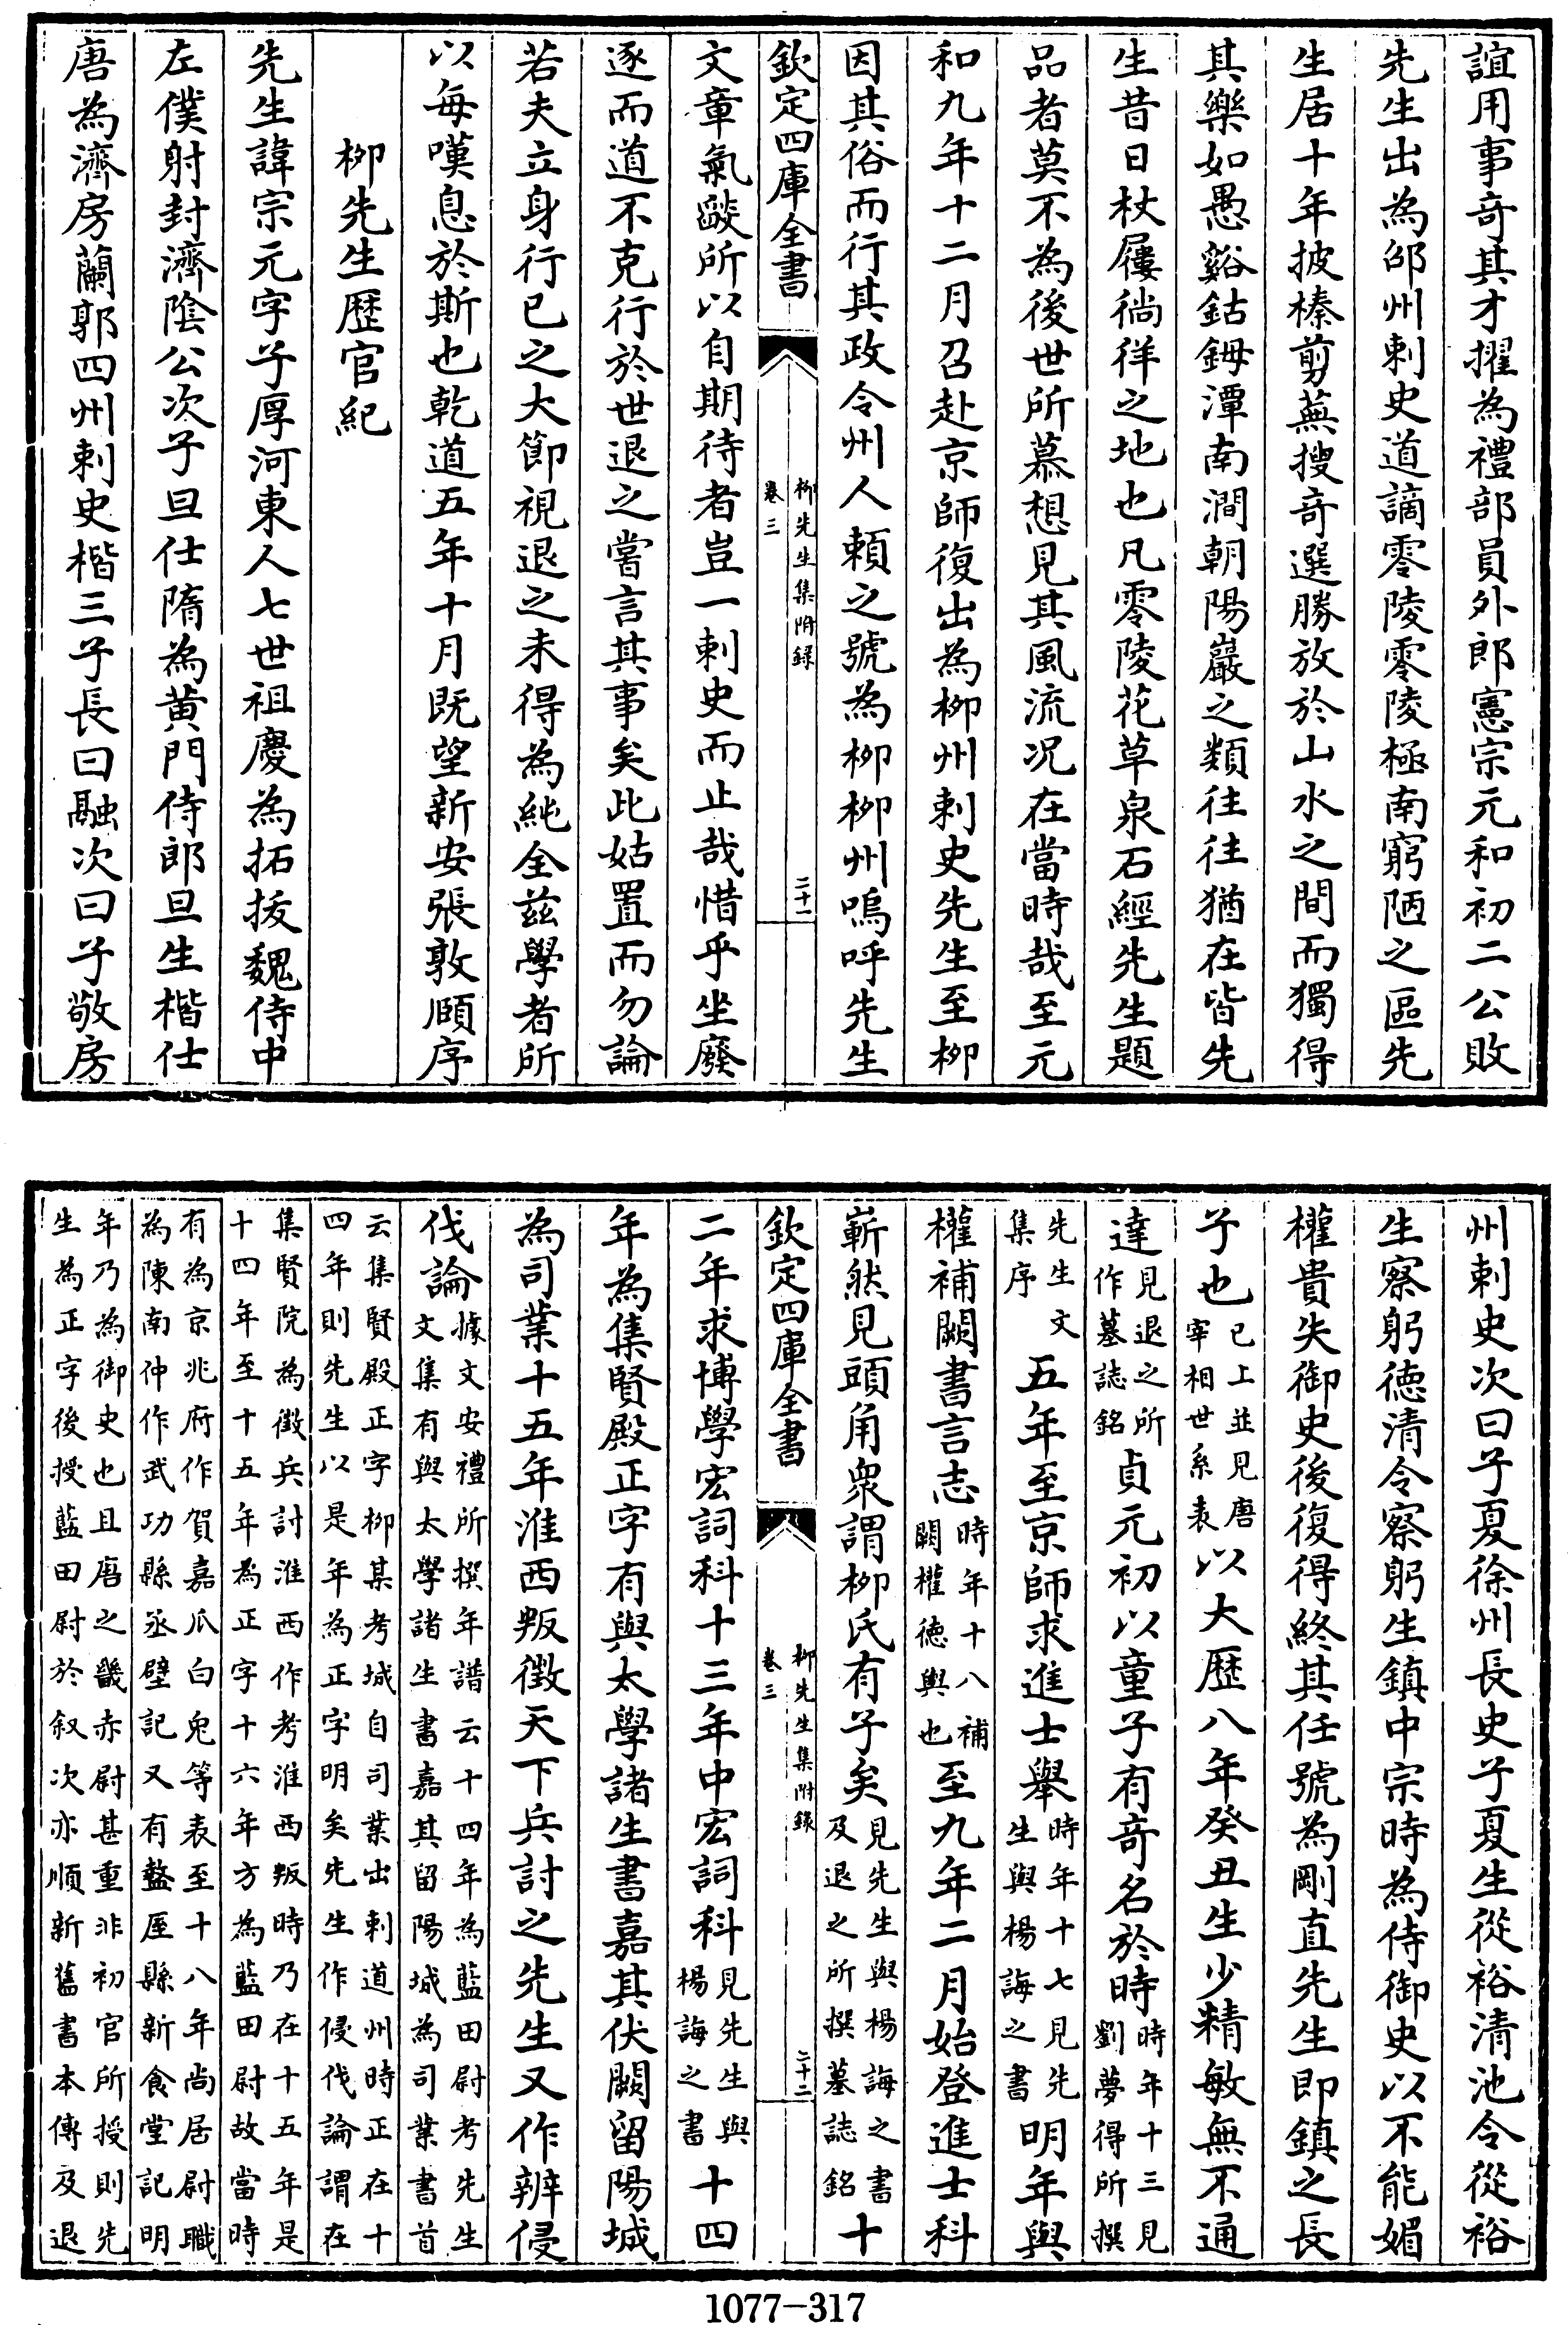 誼用事奇其才擢為禮部員外郎憲宗元和初二公敗
先生出為邵州刺史道謫零陵零陵極南窮陋之區先
生居十年披榛剪蕪搜奇選勝放於山水之間而獨得
其樂如愚谿鈷鉧潭南澗朝陽巖之類往往猶在皆先
生昔日杖屨徜徉之地也凡零陵花草泉石經先生題
品者莫不為後世所慕想見其風流况在當時哉至元
和九年十二月召赴京師復出為柳州刺史先生至柳
因其俗而行其政令州人賴之號為柳柳州嗚呼先生
欽定四庫全書
柳先生集附錄
卷三
二十一
文章氣燄所以自期待者豈一刺史而止哉惜乎坐廢
逐而道不克行於世退之嘗言其事矣此姑置而勿論
若夫立身行已之大節視退之未得為純全兹學者所
以每嘆息於斯也乾道五年十月既望新安張敦頤序
柳先生歴官紀
先生諱宗元字子厚河東人七世祖慶為拓拔魏侍中
左僕射封濟陰公次子旦仕隋為黄門侍郎旦生楷仕
唐為濟房蘭郭四州刺史楷三子長曰融次曰子敬房
州刺史次曰子夏徐州長史子夏生從裕清池令從裕
生察躬德清令察躬生鎮中宗時為侍御史以不能媚
權貴失御史後復得終其任號為剛直先生即鎮之長
子也已上並見唐宰相世系表以大歴八年癸丑生少精敏無不通
達見退之所作墓誌銘貞元初以童子有奇名於時時年十三見劉夢得所撰
先生文集序五年至京師求進士舉時年十七見先生與楊誨之書明年與
權補闕書言志時年十八補闕權德輿也至九年二月始登進士科
嶄然見頭角衆謂柳氏有子矣見先生與楊誨之書及退之所撰墓誌銘十
欽定四庫全書
柳先生集附錄
卷三
二十二
二年求博學宏詞科十三年中宏詞科見先生與楊誨之書十四
年為集賢殿正字有與太學諸生書嘉其伏闕留陽城
為司業十五年淮西叛徵天下兵討之先生又作辨侵
伐論據文安禮所撰年譜云十四年為藍田尉考先生文集有與太學諸生書嘉其留陽城為司業書首
云集賢殿正字柳某考城自司業出刺道州時正在十四年則先生以是年為正字明矣先生作侵伐論謂在
集賢院為徵兵討淮西作考淮西叛時乃在十五年是十四年至十五年為正字十六年方為藍田尉故當時
有為京兆府作賀嘉瓜白兔等表至十八年尚居尉職為陳南仲作武功縣丞壁記又有盩厔縣新食堂記明
年乃為御史也且唐之畿赤尉甚重非初官所授則先生為正字後授藍田尉於叙次亦順新舊書本傳及退
1077-317